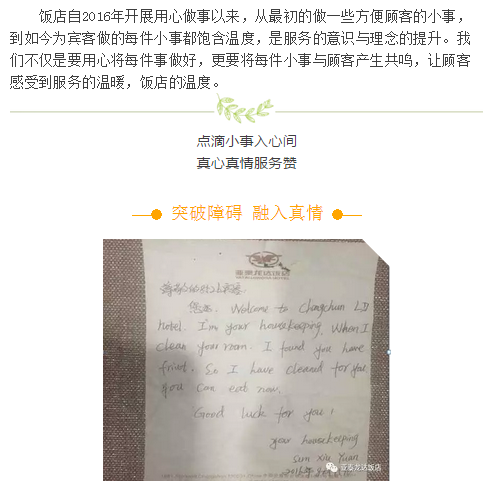 饭店自2016年开展用心做事以来，从最初的做一些方便顾客的小事，
到如今为宾客做的每件小事都饱含温度，是服务的意识与理念的提升。我
们不仅是要用心将每件事做好，更要将每件小事与顾客产生共鸣，让顾客
感受到服务的温暖，饭店的温度。
点滴小事入心间
真心真情服务赞
突破障碍 融入真情
亚泰龙达饭店
您好. Welcome to Changchun LD
hotel. I'm your housekeeping, When I
clean your room. I found you have
fruit, So I have cleaned for you
you can eat now.
Good luck for you!
your housekeeping
Sun Xiu Yuan
2016年
亚泰龙达饭店